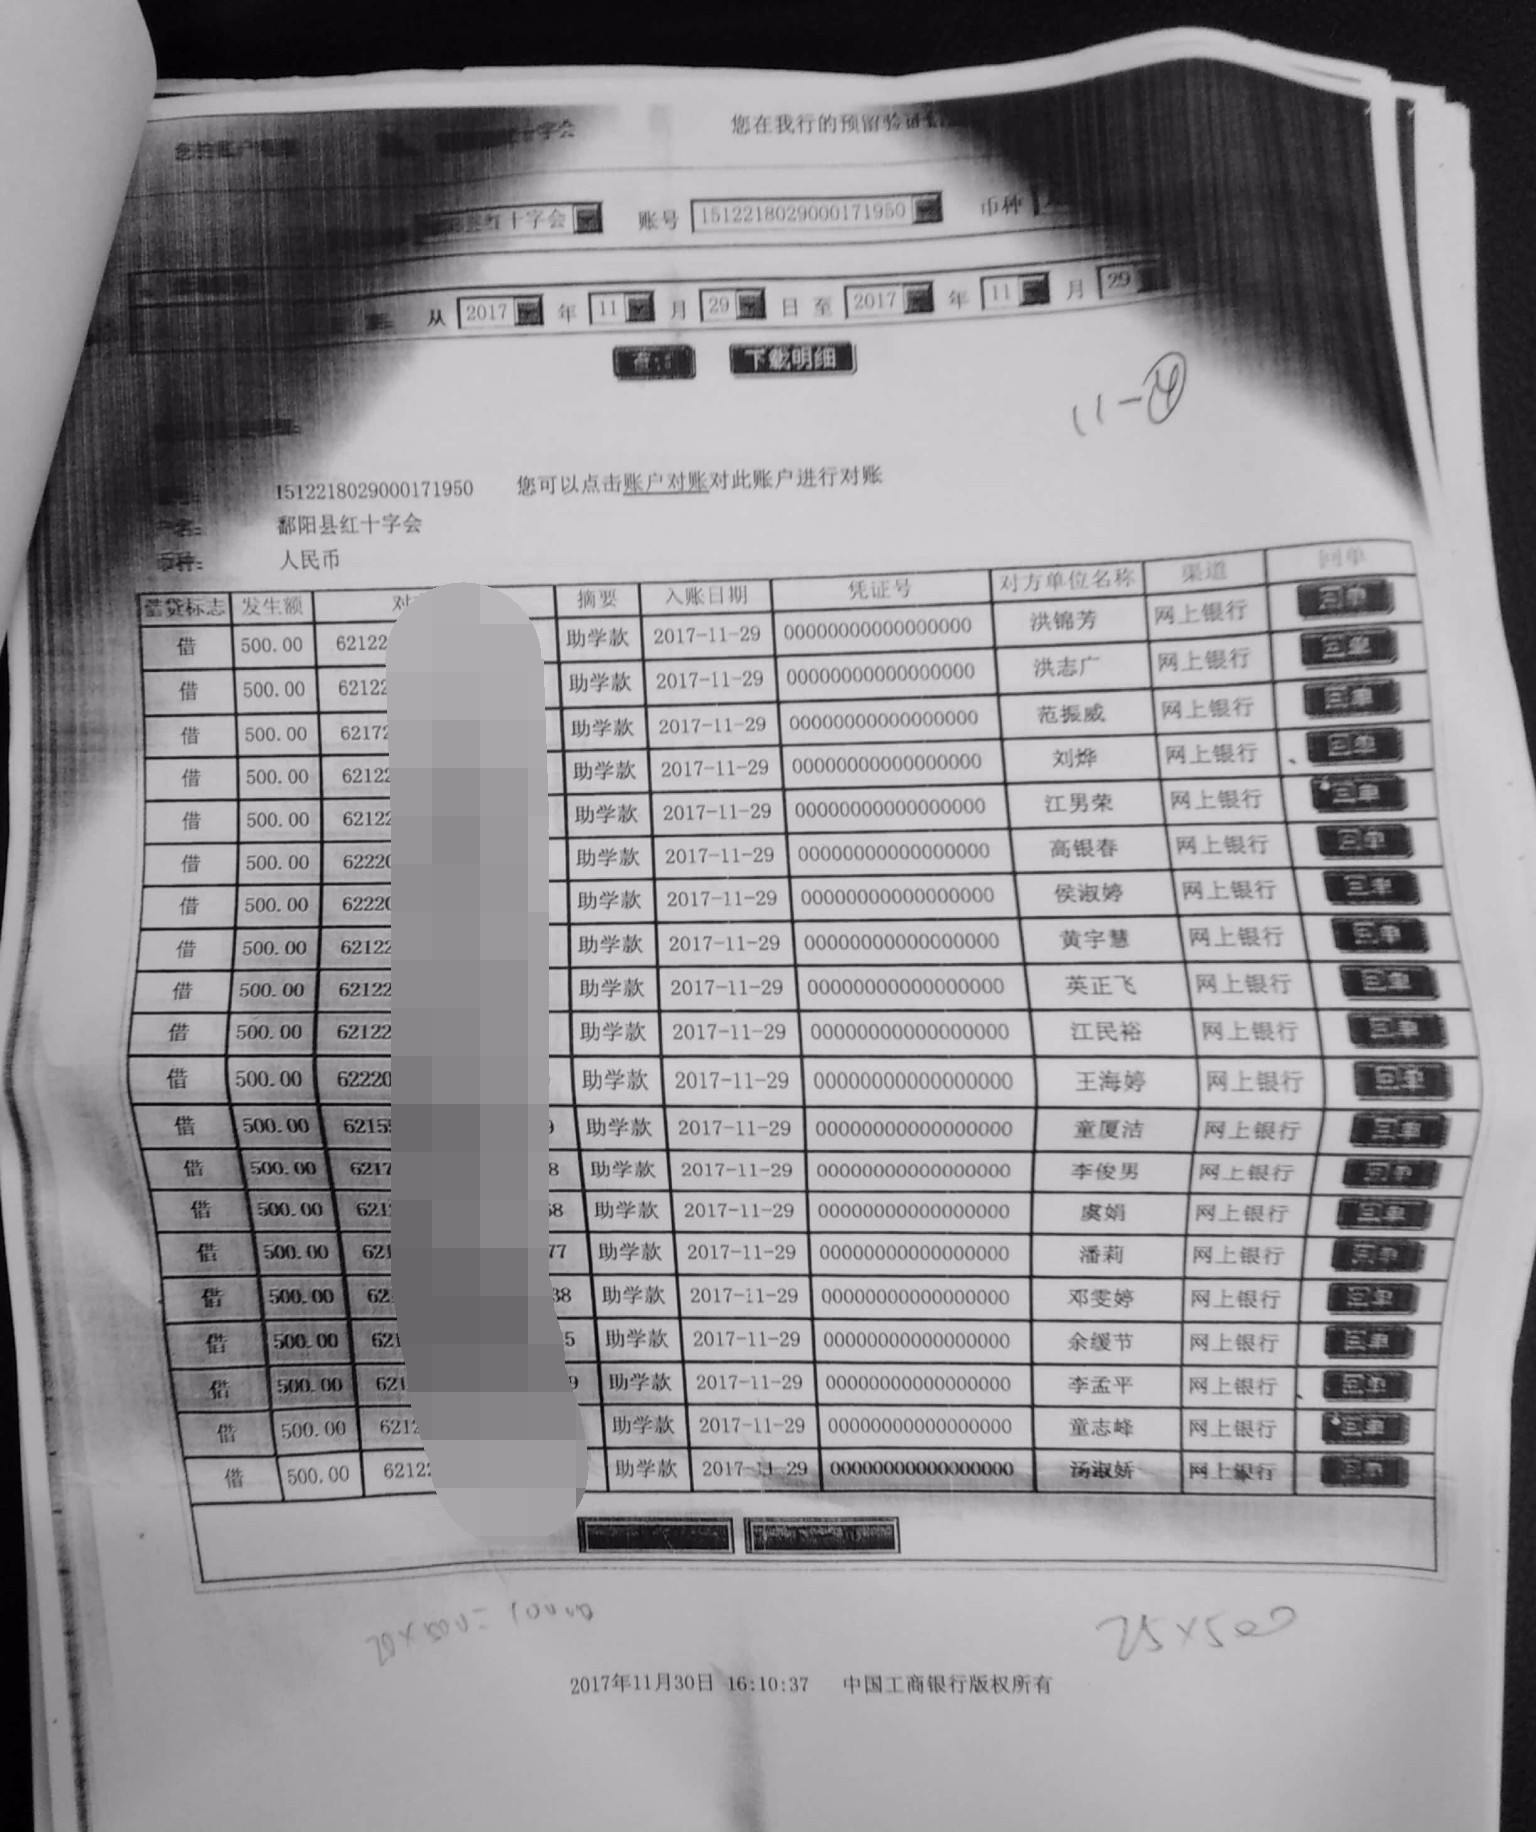 红十字会 您在我行的预留验证
红十字会 账号 1512218029000171950 币种
从 2017 年 11 月 29 日 至 2017 年 11 月 29
下载明细
11-④
1512218029000171950 您可以点击账户对账对此账户进行对账
户名: 鄱阳县红十字会
币种: 人民币
借贷标志 发生额 对 摘要 入账日期 凭证号 对方单位名称 渠道 回单
借 500.00 62122 助学款 2017-11-29 00000000000000000 洪锦芳 网上银行 回单
借 500.00 62122 助学款 2017-11-29 00000000000000000 洪志广 网上银行 回单
借 500.00 62172 助学款 2017-11-29 00000000000000000 范振威 网上银行 回单
借 500.00 62122 助学款 2017-11-29 00000000000000000 刘烨 网上银行 回单
借 500.00 62122 助学款 2017-11-29 00000000000000000 江男荣 网上银行 回单
借 500.00 62220 助学款 2017-11-29 00000000000000000 高银春 网上银行 回单
借 500.00 62220 助学款 2017-11-29 00000000000000000 侯淑婷 网上银行 回单
借 500.00 62122 助学款 2017-11-29 00000000000000000 黄宇慧 网上银行 回单
借 500.00 62122 助学款 2017-11-29 00000000000000000 英正飞 网上银行 回单
借 500.00 62122 助学款 2017-11-29 00000000000000000 江民裕 网上银行 回单
借 500.00 62220 助学款 2017-11-29 00000000000000000 王海婷 网上银行 回单
借 500.00 6215 9 助学款 2017-11-29 00000000000000000 童厦洁 网上银行 回单
借 500.00 6217 8 助学款 2017-11-29 00000000000000000 李俊男 网上银行 回单
借 500.00 621 68 助学款 2017-11-29 00000000000000000 虞娟 网上银行 回单
借 500.00 621 77 助学款 2017-11-29 00000000000000000 潘莉 网上银行 回单
借 500.00 62 38 助学款 2017-11-29 00000000000000000 邓雯婷 网上银行 回单
借 500.00 621 5 助学款 2017-11-29 00000000000000000 余缓节 网上银行 回单
借 500.00 621 9 助学款 2017-11-29 00000000000000000 李孟平 网上银行 回单
借 500.00 6212 助学款 2017-11-29 00000000000000000 童志峰 网上银行 回单
借 500.00 62122 助学款 2017-11-29 00000000000000000 汤淑娇 网上银行 回单
20×500=10000 25×500
2017年11月30日 16:10:37 中国工商银行版权所有